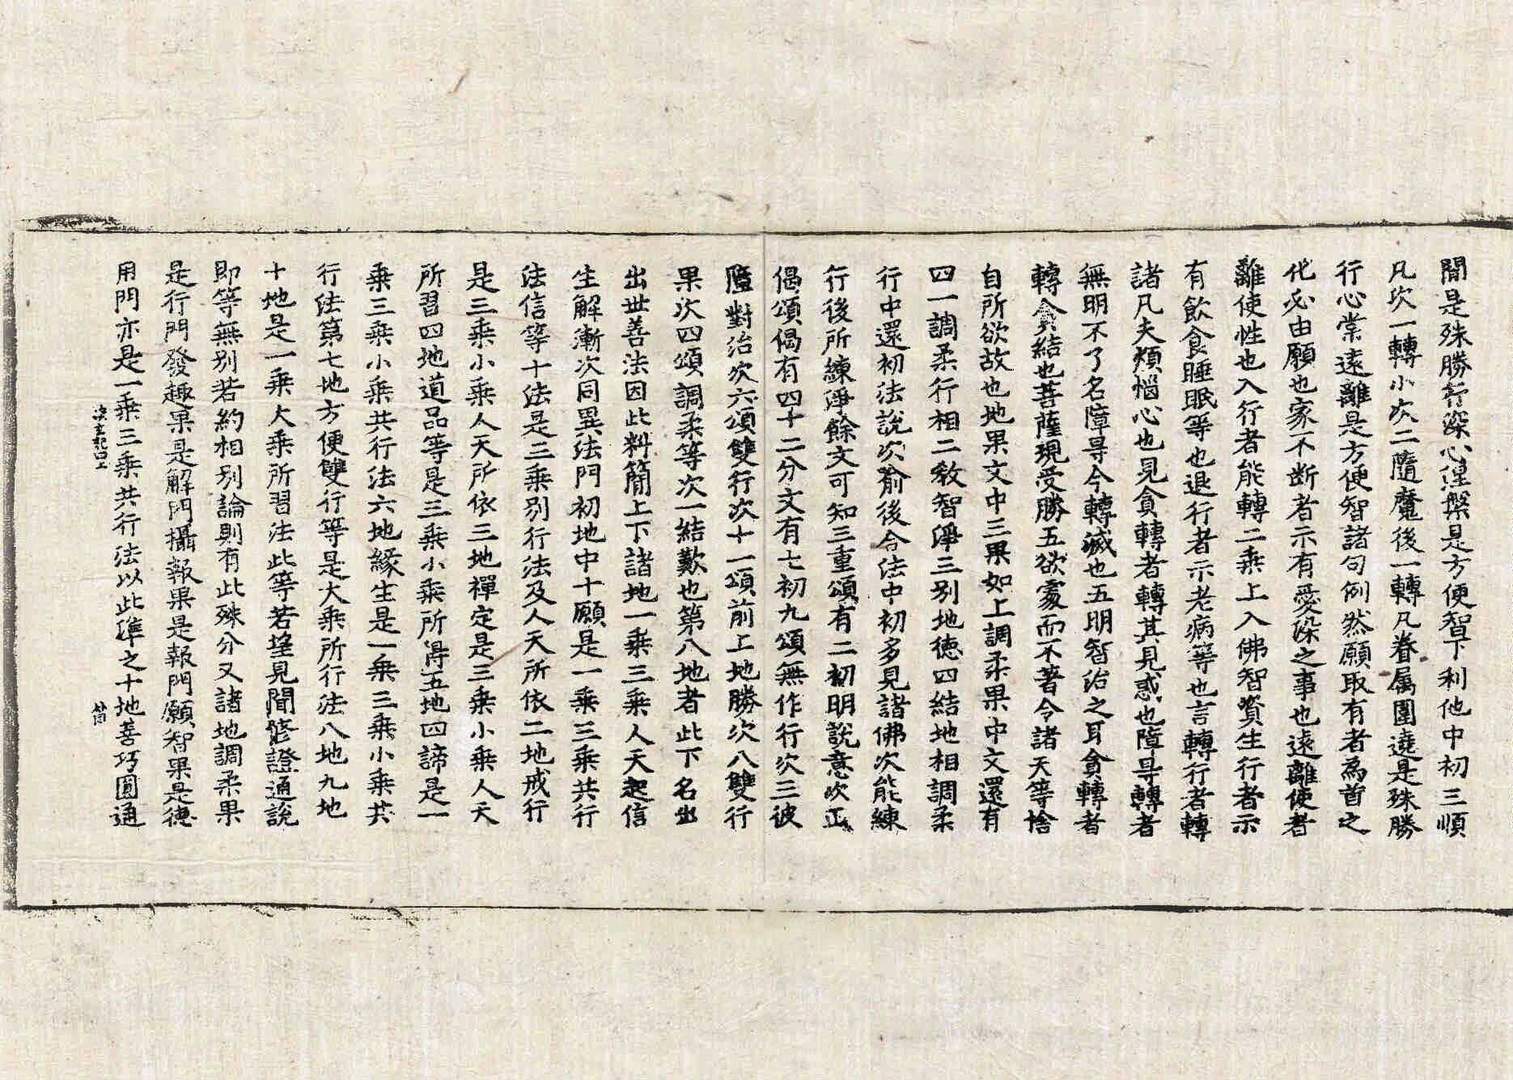 間是殊勝行深心涅槃是方便智下利他中初三順
凡次一轉小次二隨魔後一轉凡眷属圍遶是殊勝
行心常遠離是方便智諸句例然願取有者為首之
化必由願也家不断者示有愛染之事也遠離使者
離使性也入行者能轉二乘上入佛智資生行者示
有飲食睡眠等也退行者示老病等也言轉行者轉
諸凡夫煩惱心也見貪轉者轉其見惑也障导轉者
無明不了名障导今轉滅也五明智治之耳貪轉者
轉貪結也菩薩現受勝五欲處而不著令諸天等捨
自所欲故也地果文中三果如上調柔果中文還有
四一調柔行相二教智淨三別地德四結地相調柔
行中還初法說次喻後合法中初多見諸佛次能練
行後所練淨餘文可知三重頌有二初明說意次正
偈頌偈有四十二分文有七初九頌無作行次三彼
障對治次六頌雙行次十一頌前上地勝次八雙行
果次四頌調柔等次一結歎也第八地者此下名出
出世善法因此料簡上下諸地一乘三乘人天起信
生解漸次同異法門初地中十願是一乘三乘共行
法信等十法是三乘別行法及人天所依二地戒行
是三乘小乘人天所依三地禪定是三乘小乘人天
所習四地道品等是三乘小乘所得五地四諦是一
乘三乘小乘共行法六地緣生是一乘三乘小乘共
行法第七地方便雙行等是大乘所行法八地九地
十地是一乘大乘所習法此等若望見聞修證通說
即等無別若約相別論則有此殊分又諸地調柔果
是行門發趣果是解門攝報果是報門願智果是德
用門亦是一乘三乘共行法以此準之十地善巧圓通
决玄記四上